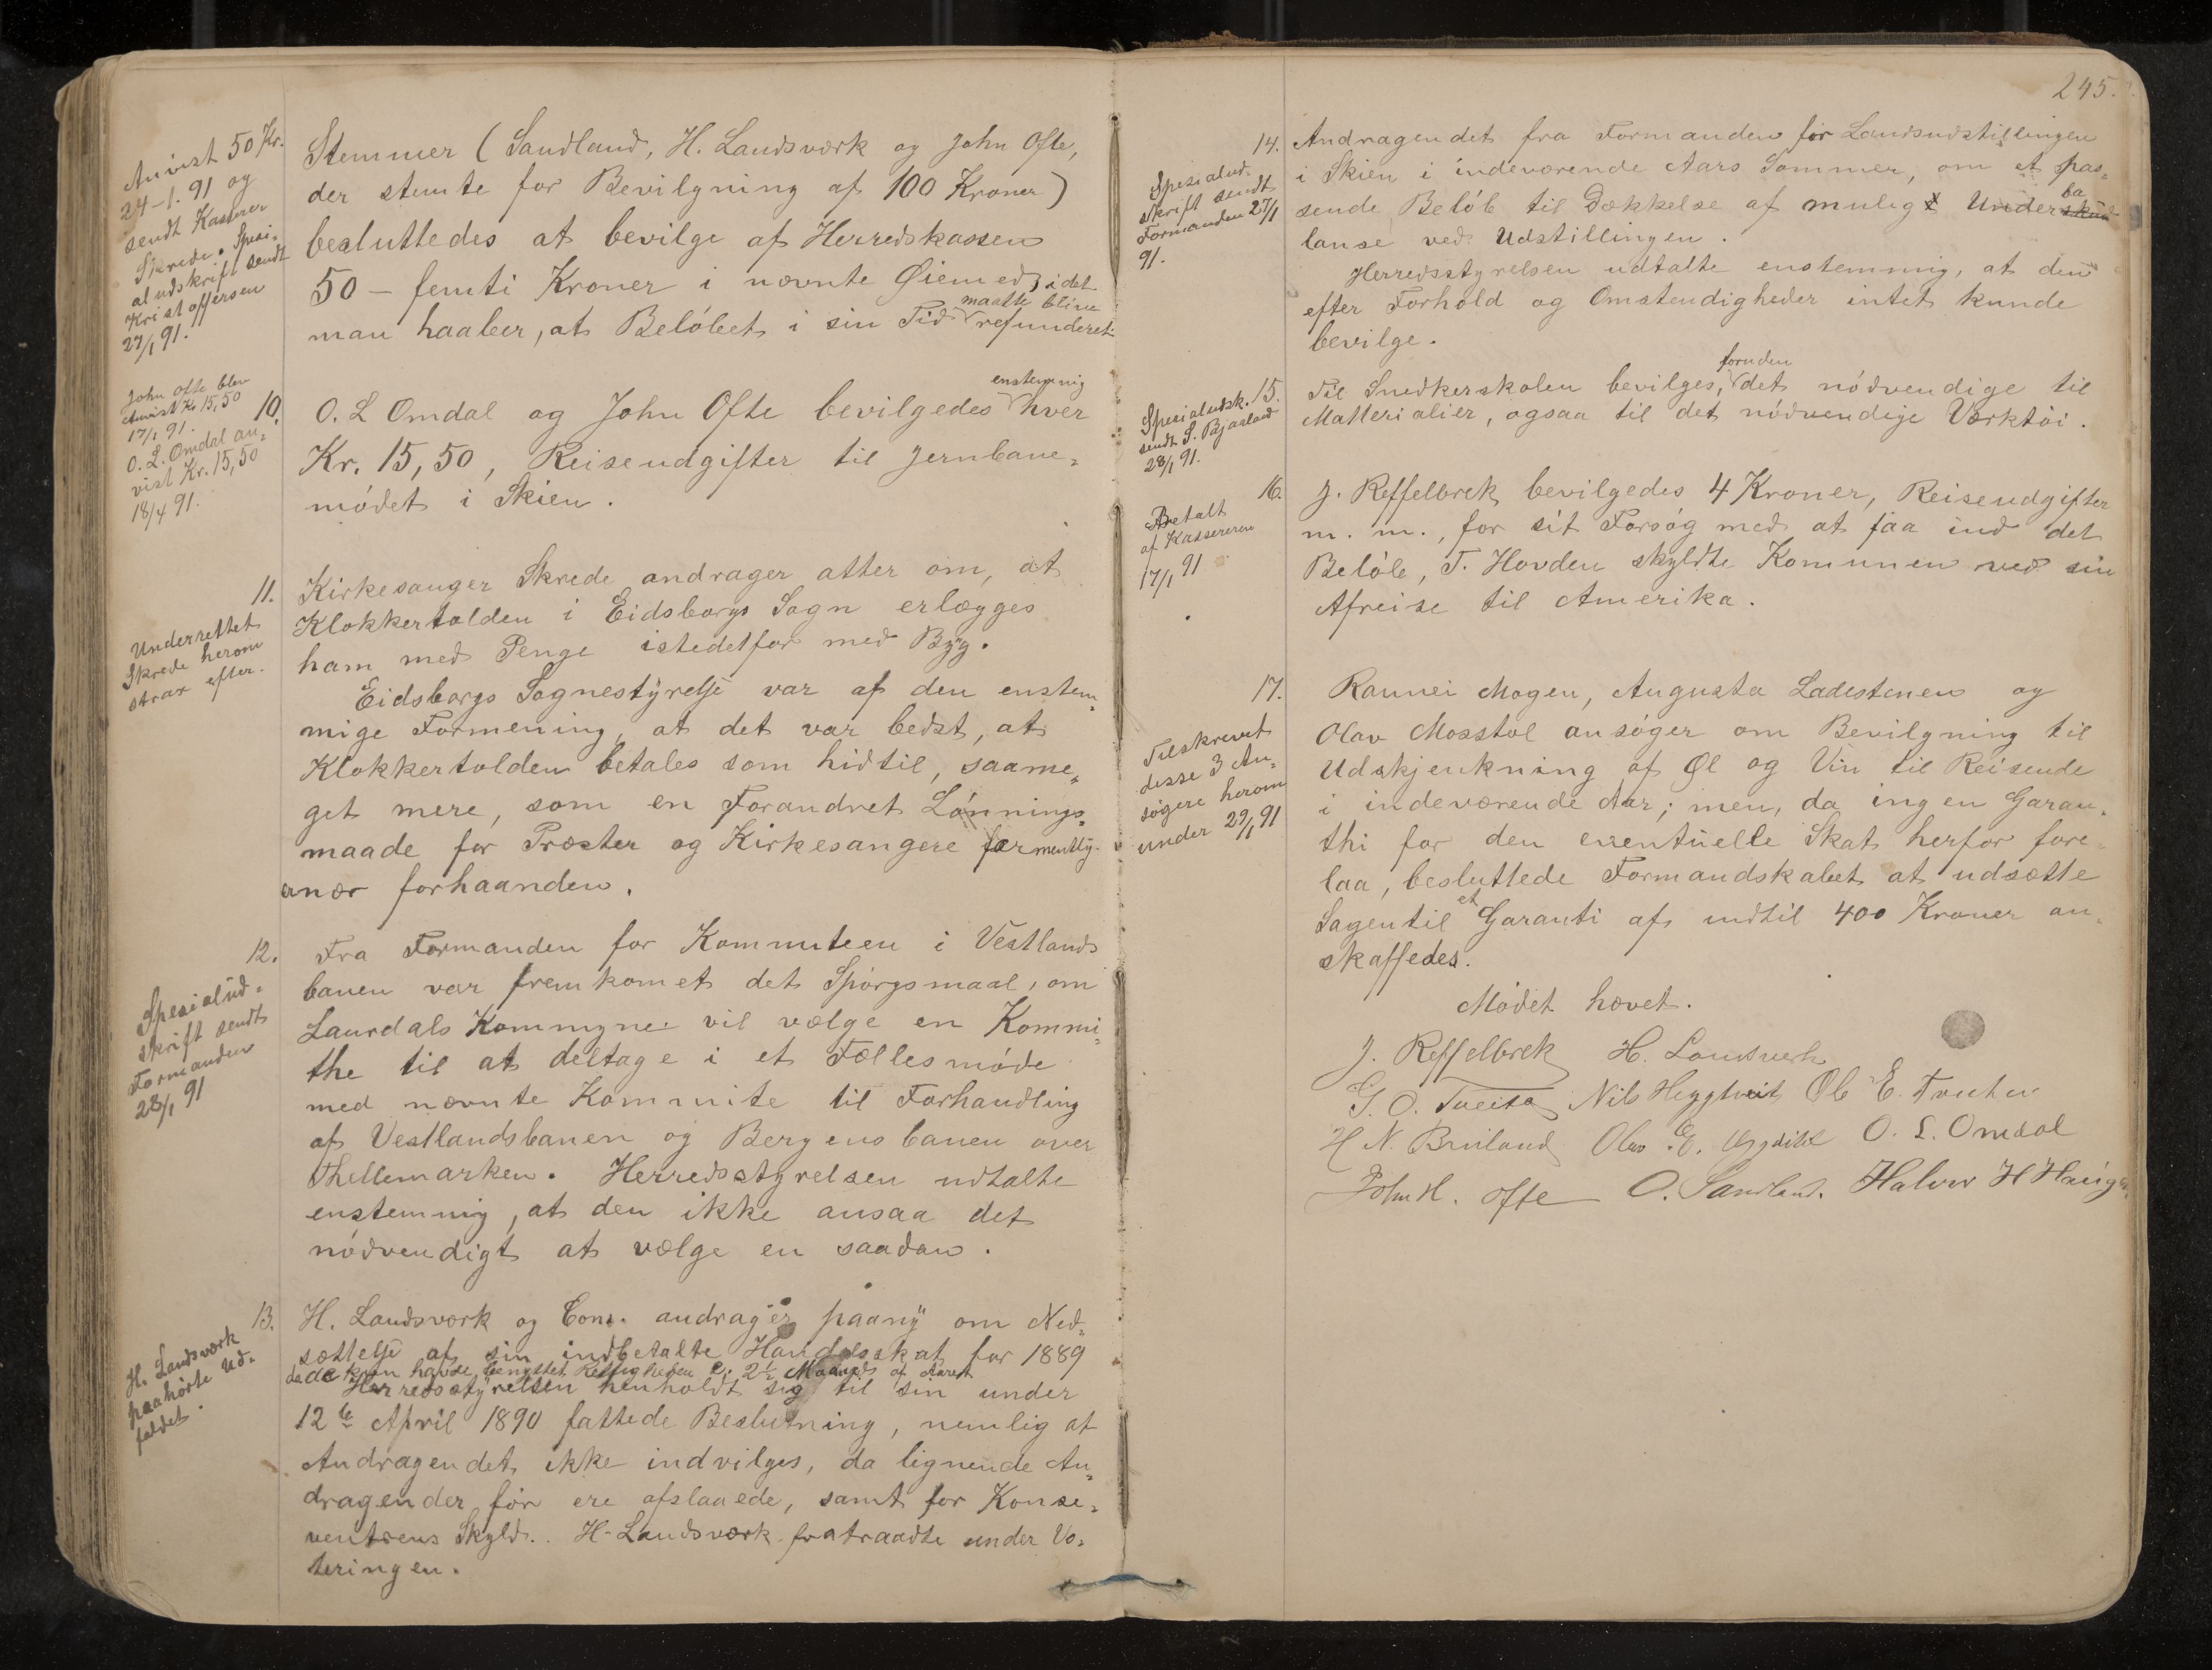 Anvist 50 Kr.
24-1. 91 og
sendt Kasserer
Skrede. Spesi-
aludskrift sendt
Kristoffersen
27/1 91.
Stemmer (Sandland, H. Landsværk og John Ofte,
der stemte for Bevilgning af 100 Kroner)
besluttedes at bevilge af Herredskassen
50 – femti Kroner i nævnte Øiemed, idet
man haaber, at Beløbet i sin Tid maatte blive refunderet
John Ofte blev
anvist Kr 15,50
17/1 91.
O. L. Omdal an-
vist Kr. 15,50
18/4 91.
10. O. L Omdal og John Ofte bevilgedes enstemmig hver
Kr. 15,50, Reiseudgifter til Jernbane-
mødet i Skien.
Underrettet
Skrede herom
strax efter.
11. Kirkesanger Skrede andrager atter om, at
Klokkertolden i Eidsborgs Sogn erlægges
ham med Penge istedetfor med Byg.
Eidsborgs Sognestyrelse var af den enstem-
mige Formening, at det var bedst, at
Klokkertolden betales som hidtil, saame-
get mere, som en Forandret Lønnings-
maade for Præster og Kirkesangere formentlig
er nær forhaanden.
Spesialud-
skrift sendt
Formanden
28/1 91
12. Fra Formanden for Kommiteen i Vestlands
banen var fremkomet det Spørgsmaal, om
Laurdals Kommune vil vælge en Kommi-
the til at deltage i et Fællesmøde
med nævnte Kommite til Forhandling
af Vestlandsbanen og Bergensbanen over
Thellemarken. Herredsstyrelsen udtalte
enstemmig, at den ikke ansaa det
nødvendigt at vælge en saadan.
H. Landsværk
paahørte Ud-
faldet.
13. H. Landsværk og Comp. andrager paany om Ned-
sættelse af sin indbetalte Handelsskat for 1889
da de kun havde benyttet Rettigheden c. 2½ Maaned af Aaret
Herredsstyrelsen henholdt sig til sin under
12te April 1890 fattede Beslutning, nemlig at
Andragendet ikke indvilges, da lignende An-
dragender før ere afslaaede, samt for Konse-
ventsens Skyld. H. Landsværk fratraadte under Vo-
teringen.
245.
Spesialud-
skrift sendt
Formanden 27/1
91.
14. Andragendet fra Formanden for Landsudstillingen
i Skien i indeværende Aars Sommer, om et pas-
sende Beløb til Dækkelse af mulig Underba
lanse ved Udstillingen.
Herredsstyrelsen udtalte enstemmig, at den
efter Forhold og Omstendigheder intet kunde
bevilge.
Spesialudsk.
sendt S. Bjaaland
28/1 91.
15. Til Snedkerskolen bevilges, foruden det nødvendige til
Matterialier, ogsaa til det nødvendige Værktøi.
Betalt
af Kassereren
17/1 91
16. J. Reffelbrek bevilgedes 4 Kroner, Reiseudgifter
m. m., for sit Forsøg med at faa ind det
Beløb, T. Hovden skyldte Komunen ved sin
Afreise til Amerika.
Tilskrevet
disse 3 An-
søgere herom
under 29/1 91
17. Rannei Mogen, Augusta Ladestenen og
Olav Mosstøl ansøger om Bevilgning til
Udskjenkning af Øl og Vin til Reisende
i indeværende Aar; men, da ingen Garan-
thi for den eventuelle Skat herfor fore-
laa, besluttede Formandskabet at udsætte
Sagen til et Garanti af indtil 400 Kroner an-
skaffedes.
Mødet hævet.
J. Reffelbrek H. Landsverk
G. O. Tveito Nils Heggtveit Ole E.
H N. Bruland Olav E. O. L. Omdal
John H. Ofte O. Sandland. Halvor H Haugen